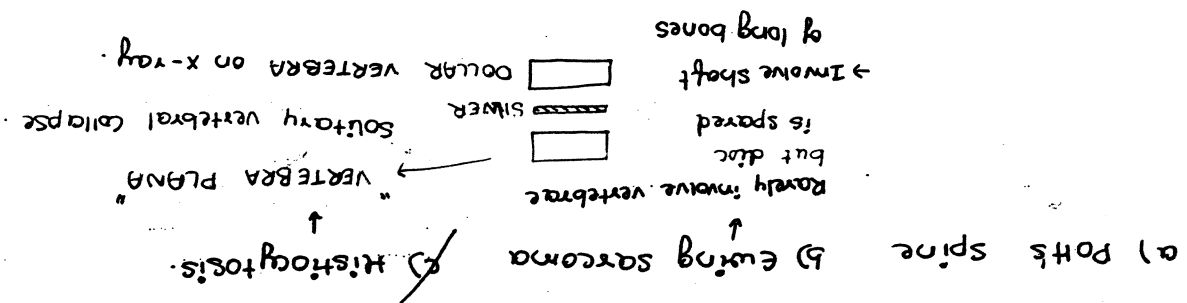 a) Pott's spine b) Ewing sarcoma c) Histiocytosis.
↓ ↓
Rarely involve vertebrae
but disc
is spared
→ Involve shaft
of long bones
"VERTEBRA PLANA"
Solitary vertebral collapse.
SILVER
DOLLAR VERTEBRA on x-ray.